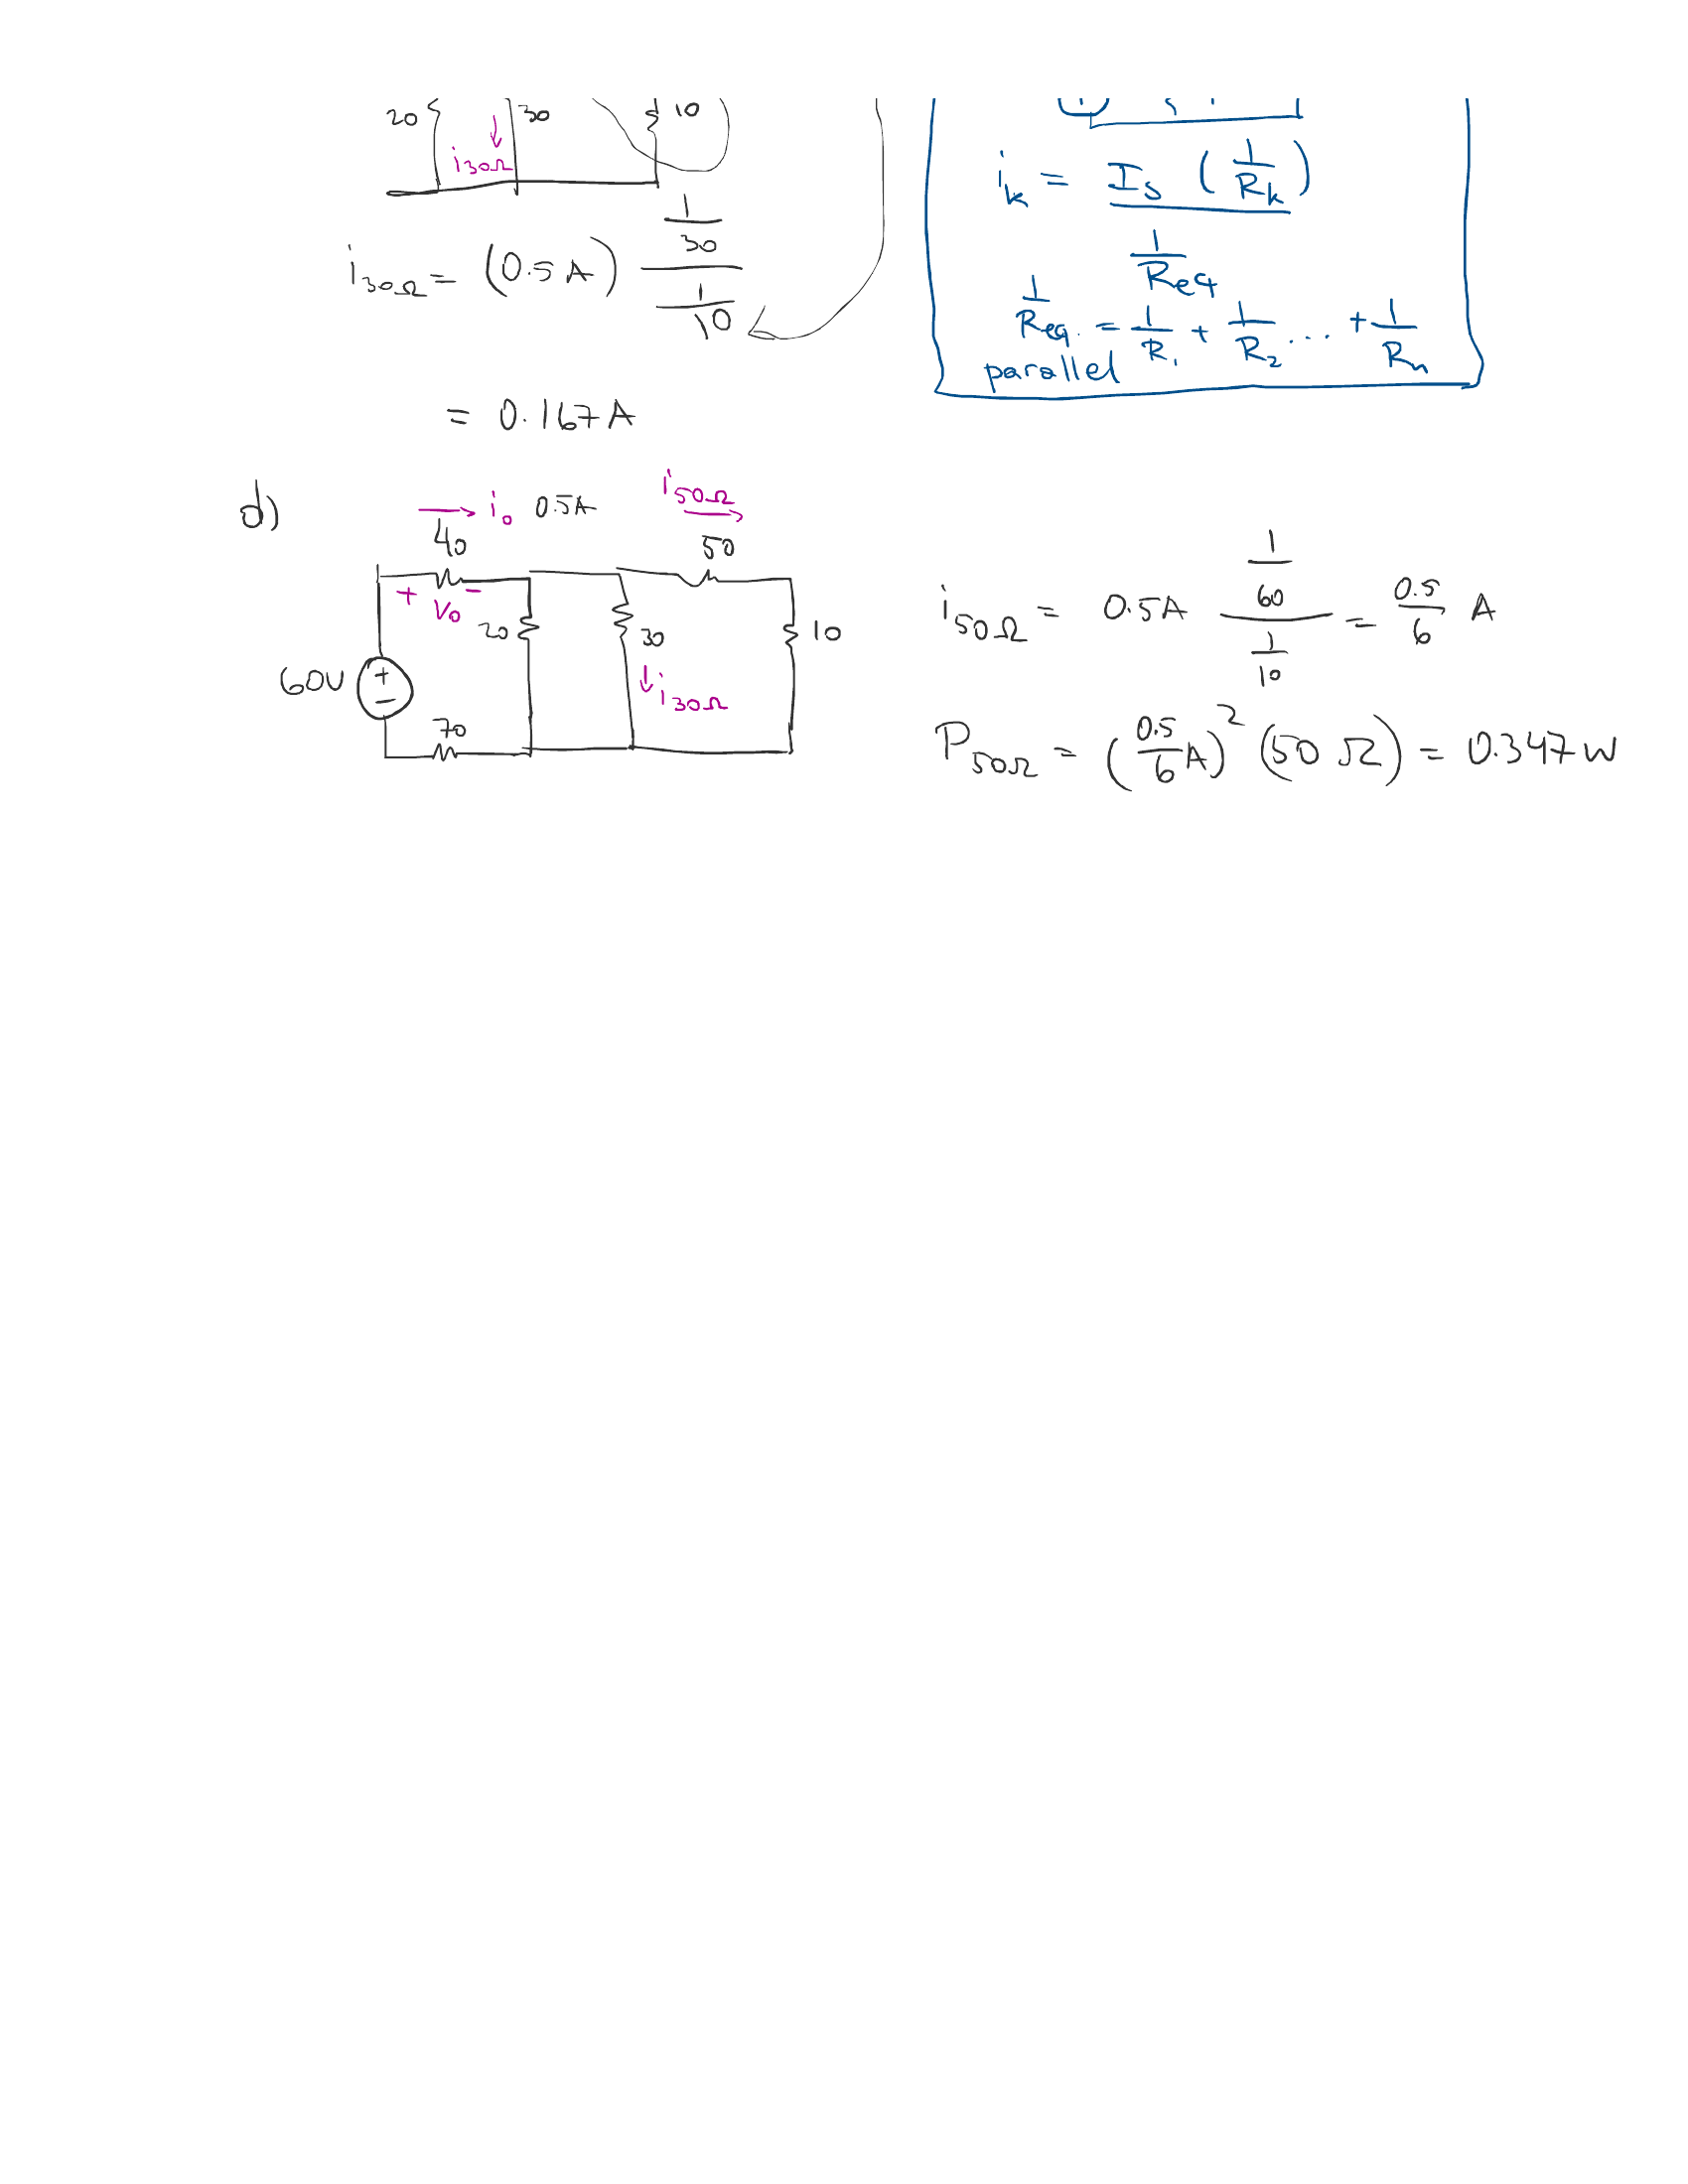 20 30 10
i30Ω
i30Ω = (0.5A) (1/30)/(1/10)
= 0.167A
ik = Is (1/Rk)
1/Req
1/Req. = 1/R1 + 1/R2 ... + 1/Rn
parallel
d)
i0 0.5A i50Ω
40 50
+ V0 -
20 30 10
60V + -
i30Ω
70
i50Ω = 0.5A (1/60)/(1/10) = 0.5/6 A
P50Ω = (0.5/6 A)² (50 Ω) = 0.347 W